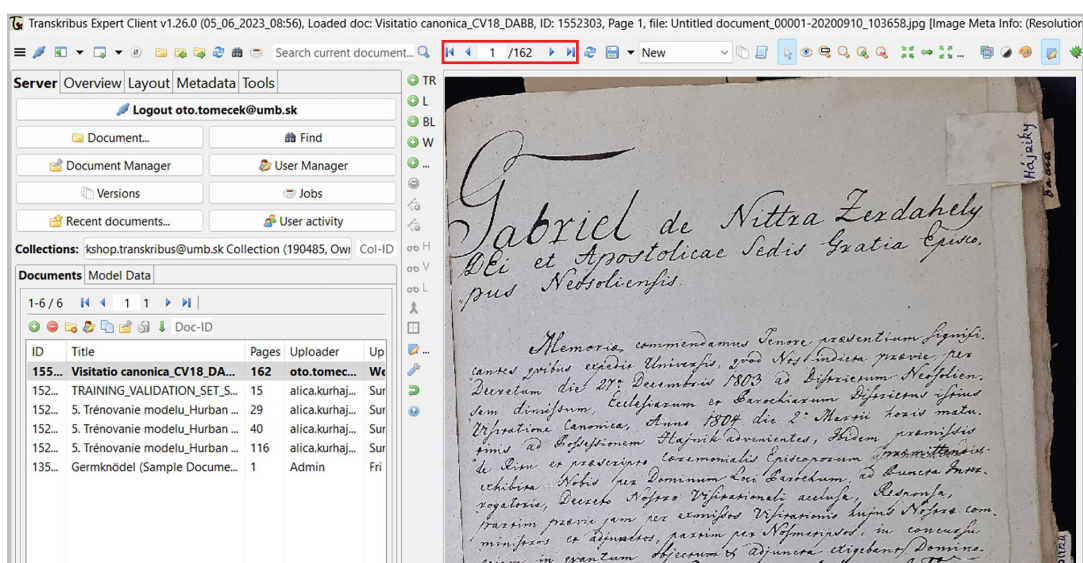 Transkribus Expert Client v1.26.0 (05_06_2023_08:56), Loaded doc: Visitatio canonica_CV18_DABB, ID: 1552303, Page 1, file: Untitled document_00001-20200910_103658.jpg [Image Meta Info: (Resolution
Search current document... 1 /162 New
Server Overview Layout Metadata Tools
Logout oto.tomecek@umb.sk
Document... Find
Document Manager User Manager
Versions Jobs
Recent documents... User activity
Collections: kshop.transkribus@umb.sk Collection (190485, Owr Col-ID
Documents Model Data
1-6 / 6 1 1
Doc-ID
ID Title Pages Uploader Up
155... Visitatio canonica_CV18_DA... 162 oto.tomec... We
152... TRAINING_VALIDATION_SET_S... 15 alica.kurhaj... Sur
152... 5. Trénovanie modelu_Hurban ... 29 alica.kurhaj... Sur
152... 5. Trénovanie modelu_Hurban ... 40 alica.kurhaj... Sur
152... 5. Trénovanie modelu_Hurban ... 116 alica.kurhaj... Sur
135... Germknödel (Sample Docume... 1 Admin Fri
TR
L
BL
W
...
H
V
L
...
Hájniky
Gabriel de Nittra Zerdahely
DEi et Apostolicae Sedis Gratia Episco-
pus Neosoliensis.
Memoriae commendamus Tenore praesentium signifi-
cantes quibus expedit Universis, quod Nos indicta praevie, per
Decretum die 27a Decembris 1803 ad Districtum Neosolien-
sem dimissum, Ecclesiarum et Parochiarum Districtus istius
Visitatione Canonica, Anno 1804 die 2a Martii horis matu-
tinis ad Possessionem Hajnik advenientes, Ibidem praemissis
de Ritu et praescripto Caeremonialis Episcoporum praemittendis
exhibita Nobis per Dominum Loci Parochum, ad Puncta Inter-
rogatoria, Decreto Nostro Visitationali acclusa, Responsa,
partim praevie jam per exmissos Visitationis hujus Nostrae com-
ministros et adjunctos, partim per Nosmetipsos, in concursu
in quantum objectum et adjuncta exigebant Domino-